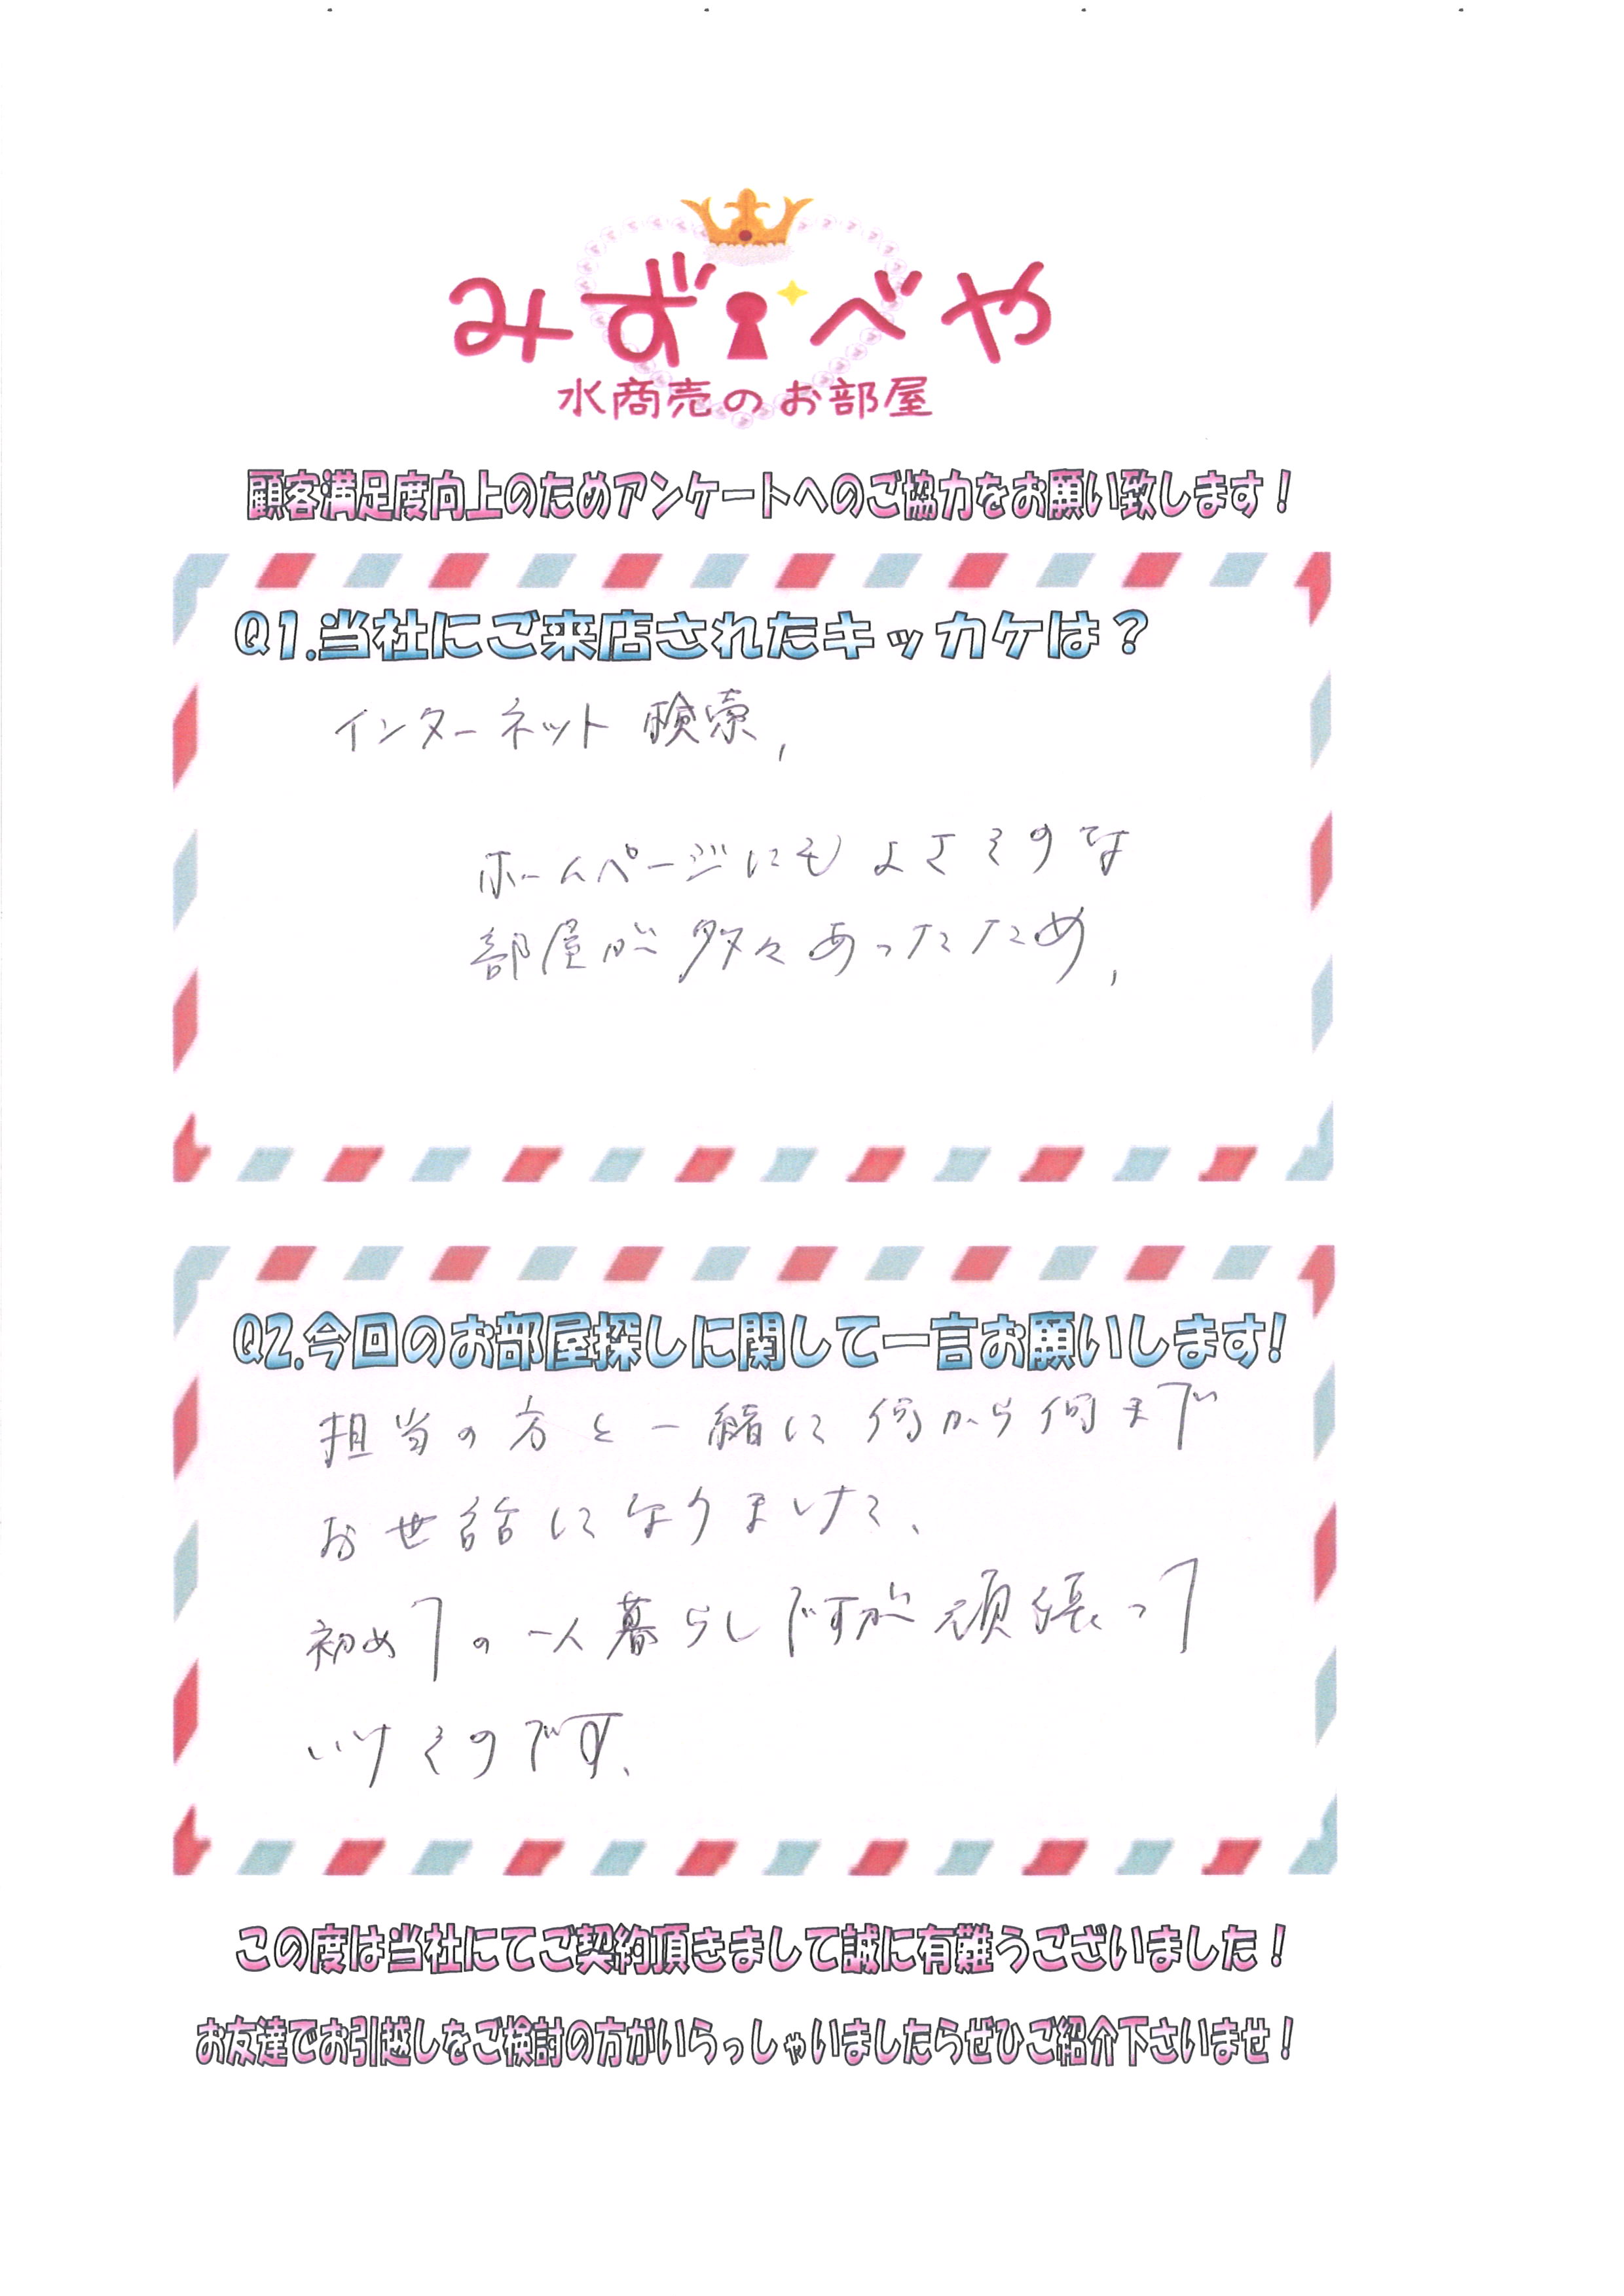 みずべや
水商売のお部屋
顧客満足度向上のためアンケートへのご協力をお願い致します！
Q1.当社にご来店されたキッカケは？
インターネット検索,
ホームページにもよさそうな
部屋が多々あったため,
Q2.今回のお部屋探しに関して一言お願いします!
担当の方と一緒に何から何まで
お世話になりました、
初めての一人暮らしですが頑張って
いけそうです、
この度は当社にてご契約頂きまして誠に有難うございました！
お友達でお引越しをご検討の方がいらっしゃいましたらぜひご紹介下さいませ！